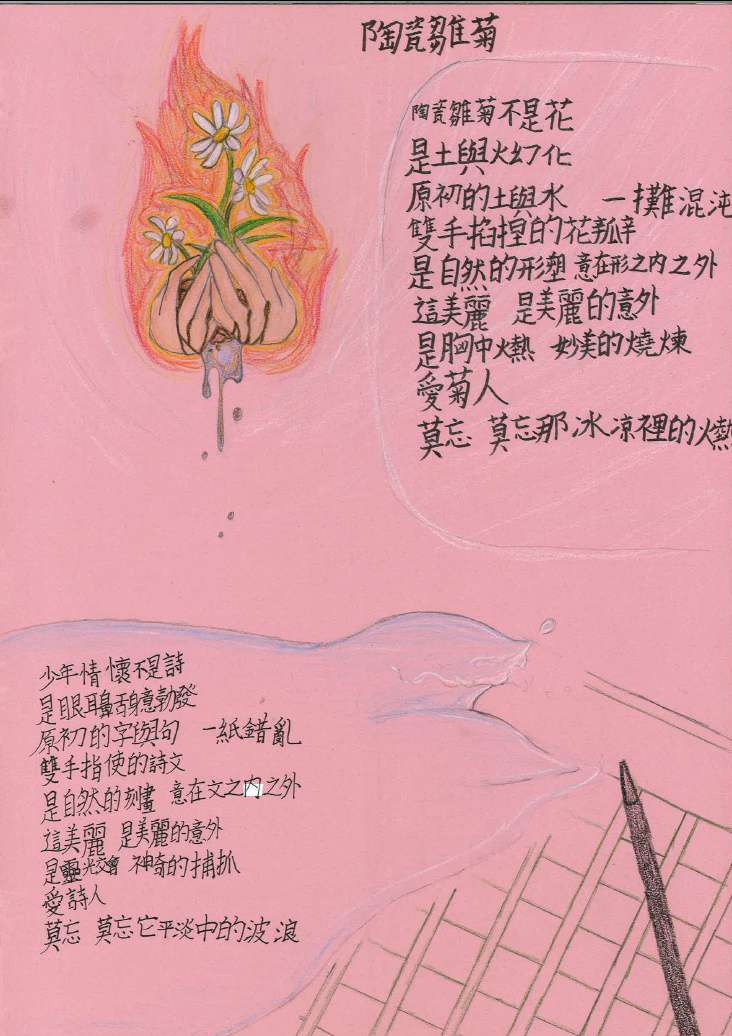 陶瓷雛菊
陶瓷雛菊不是花
是土與火幻化
原初的土與水　一攤混沌
雙手掐捏的花瓣
是自然的形塑 意在形之内之外
這美麗　是美麗的意外
是胸中火熱　妙美的燒煉
愛菊人
莫忘 莫忘那冰涼裡的火熱
少年情懷不是詩
是眼耳鼻舌身意勃發
原初的字與句　一紙錯亂
雙手指使的詩文
是自然的刻畫 意在文之内之外
這美麗 是美麗的意外
是靈光交會 神奇的捕抓
愛詩人
莫忘 莫忘它平淡中的波浪